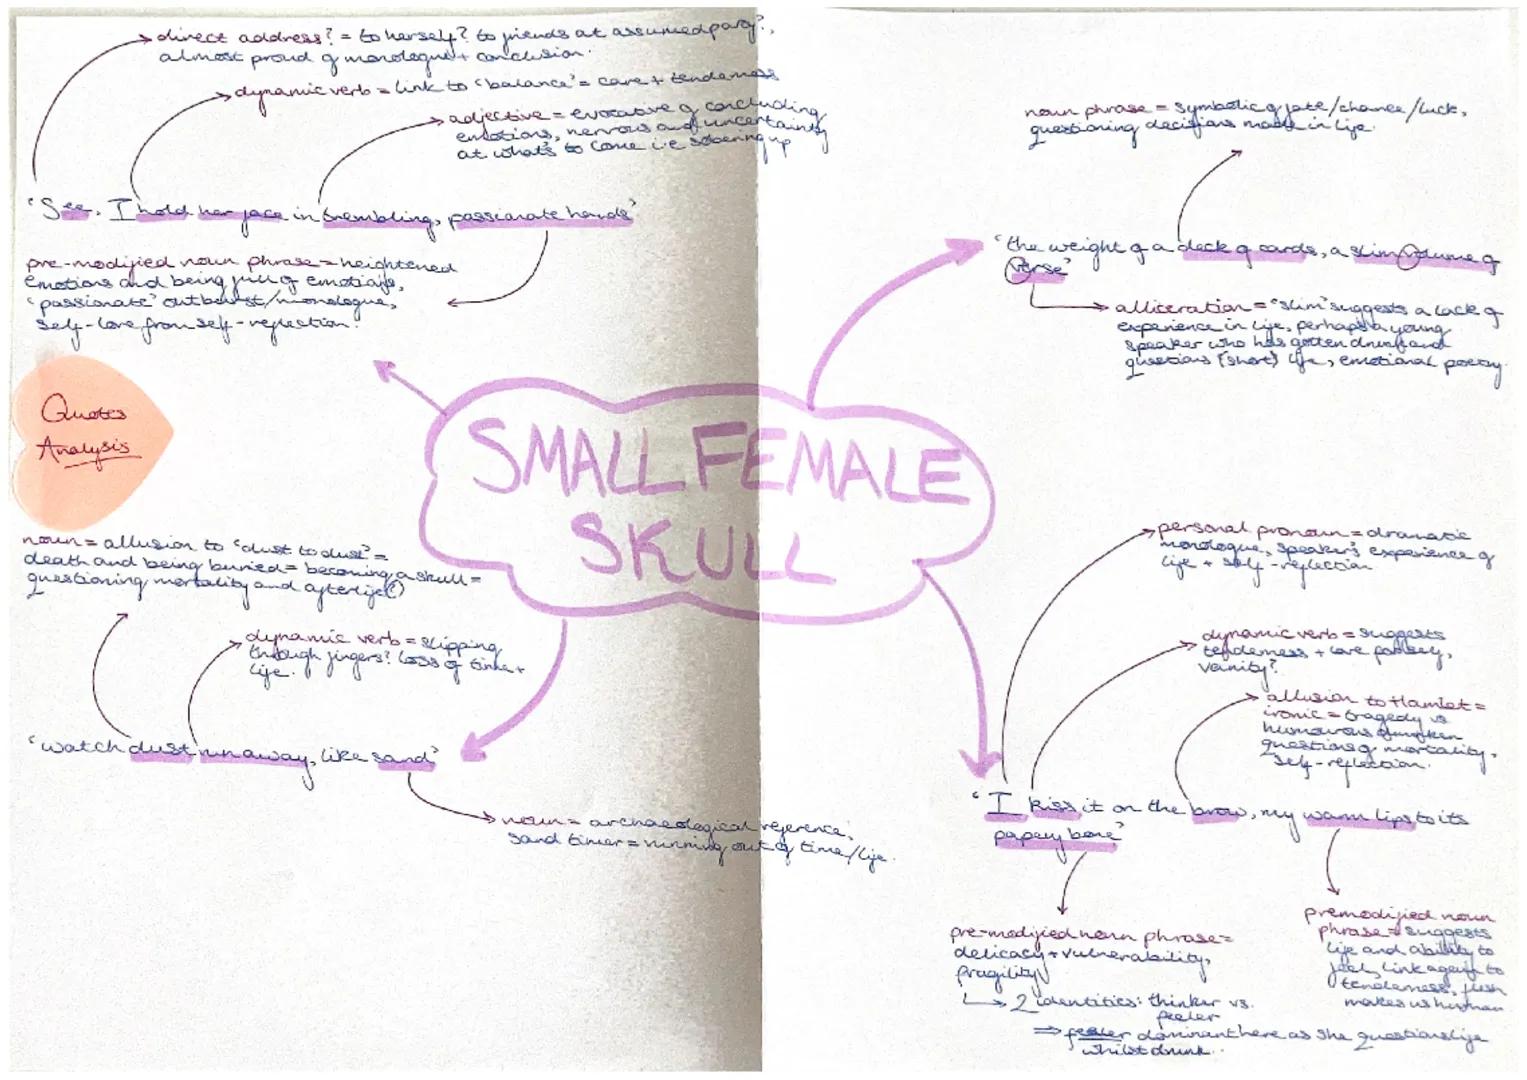 direct address? = to herself? to friends at assumed party?,
almost proud of monologue + conclusion.
dynamic verb = link to 'balance' = care + tenderness
adjective = evocative of concluding
emotions, nervous and uncertainty
at what's to come i.e sobering up
'See, I hold her face in trembling, passionate hands'
pre-modified noun phrase = heightened
emotions and being full of emotions,
'passionate' outburst/monologue,
self-love from self-reflection?
Quotes
Analysis
noun = allusion to 'dust to dust' =
death and being buried = becoming a skull =
questioning mortality and afterlife(?)
dynamic verb = slipping
through fingers? loss of time +
life.
'watch dust run away, like sand'
noun = archaeological reference,
sand timer = running out of time/life.
SMALL FEMALE
SKULL
noun phrase = symbolic of fate/chance/luck,
questioning decisions made in life.
'the weight of a deck of cards, a slim volume of
verse'
alliteration = 'slim' suggests a lack of
experience in life, perhaps a young
speaker who has gotten drunk and
questions (short) life, emotional poetry.
personal pronoun = dramatic
monologue, speaker's experience of
life + self-reflection
dynamic verb = suggests
tenderness + love for self,
vanity?
allusion to Hamlet =
ironic = tragedy vs
humourous drunken
questions of mortality,
self-reflection.
'I kiss it on the brow, my warm lips to its
papery bone'
pre-modified noun phrase =
delicacy + vulnerability,
fragility
2 identities: thinker vs.
feeler
⇒ feeler dominant here as she questions life
whilst drunk.
premodified noun
phrase = suggests
life and ability to
feel, link again to
tenderness, flesh
makes us human